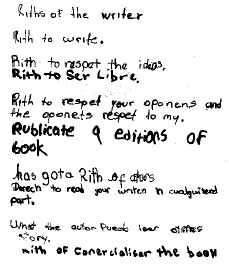 Riths of the writer
Rith to write.
Rith to respot the ideas.
Rith to Ser Libre.
Rith to respet your oponens and
the oponets respet to my.
Publicate 9 editions OF
book
has gota Rith of
Derech to read your writen in
part.
What the autor Puedo leer
story.
with OF Comercialisar the book